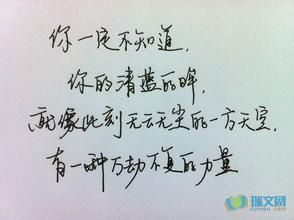 你一定不知道,
你的清蓝的眸,
就像此刻无云无尘的一方天空,
有一种万劫不复的力量
瑞文网
ruiwen.com